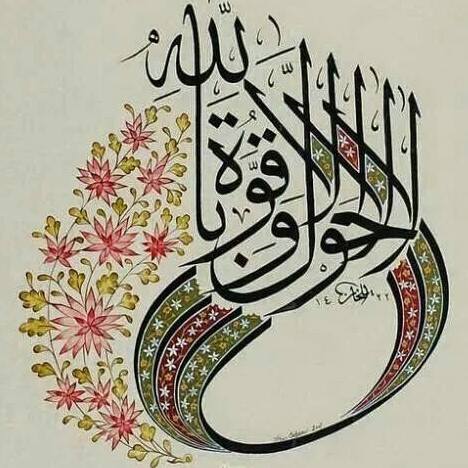 لا حول ولا قوة إلا بالله
١٤٢٢